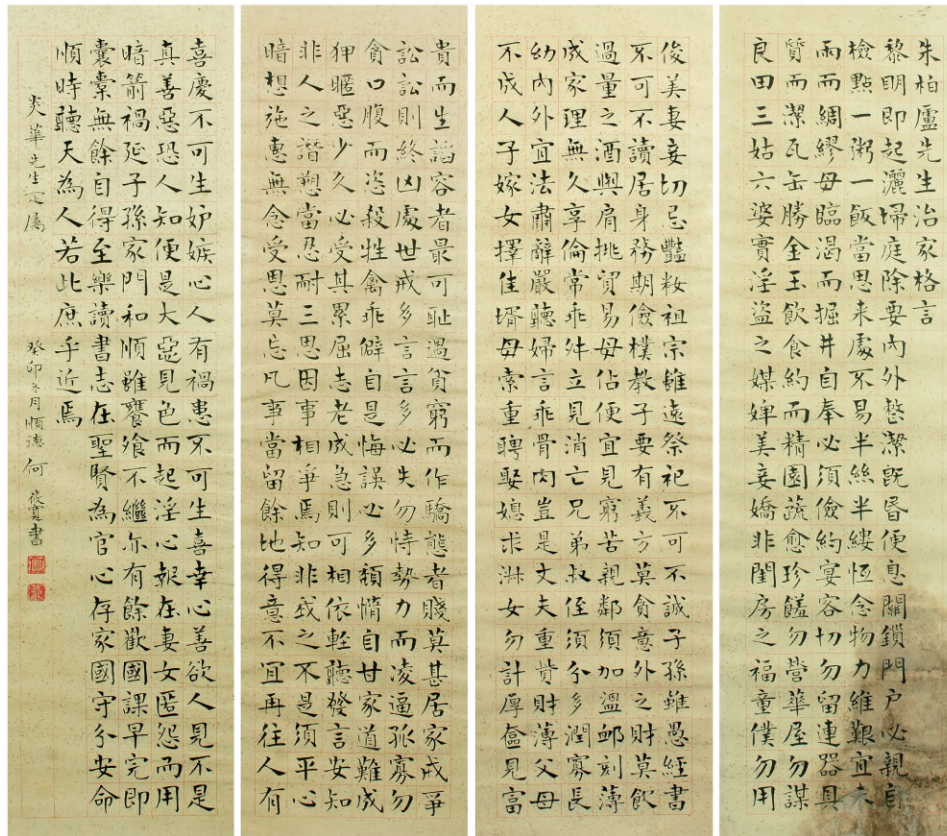 朱柏廬先生治家格言
黎明即起灑埽庭除要內外整潔既昏便息關鎖門戶必親自
檢點一粥一飯當思来處不易半絲半縷恆念物力維艱宜未
雨而綢繆毋臨渴而掘井自奉必須儉約宴客切勿留連器具
質而潔瓦缶勝金玉飲食約而精園蔬愈珍饈勿營華屋勿謀
良田三姑六婆實淫盜之媒婢美妾嬌非閨房之福童僕勿用
俊美妻妾切忌豔粧祖宗雖遠祭祀不可不誠子孫雖愚經書
不可不讀居身務期儉樸教子要有義方莫貪意外之財莫飲
過量之酒與肩挑貿易毋佔便宜見窮苦親鄰須加溫卹刻薄
成家理無久享倫常乖舛立見消亡兄弟叔侄須分多潤寡長
幼內外宜法肅辭嚴聽婦言乖骨肉豈是丈夫重貲財薄父母
不成人子嫁女擇佳壻毋索重聘娶媳求淑女勿計厚奩見富
貴而生諂容者最可恥遇貧窮而作驕態者賤莫甚居家戒爭
訟訟則終凶處世戒多言言多必失勿恃勢力而凌逼孤寡勿
貪口腹而恣殺牲禽乖僻自是悔誤必多頹惰自甘家道難成
狎暱惡少久必受其累屈志老成急則可相依輕聽發言安知
非人之譖愬當忍耐三思因事相爭焉知非我之不是須平心
暗想施惠無念受恩莫忘凡事當留餘地得意不宜再往人有
喜慶不可生妒嫉心人有禍患不可生喜幸心善欲人見不是
真善惡恐人知便是大惡見色而起淫心報在妻女匿怨而用
暗箭禍延子孫家門和順雖饔飧不繼亦有餘歡國課早完即
囊橐無餘自得至樂讀書志在聖賢為官心存家國守分安命
順時聽天為人若此庶乎近焉
炎華先生正屬 癸卯冬月順德何筱寬書